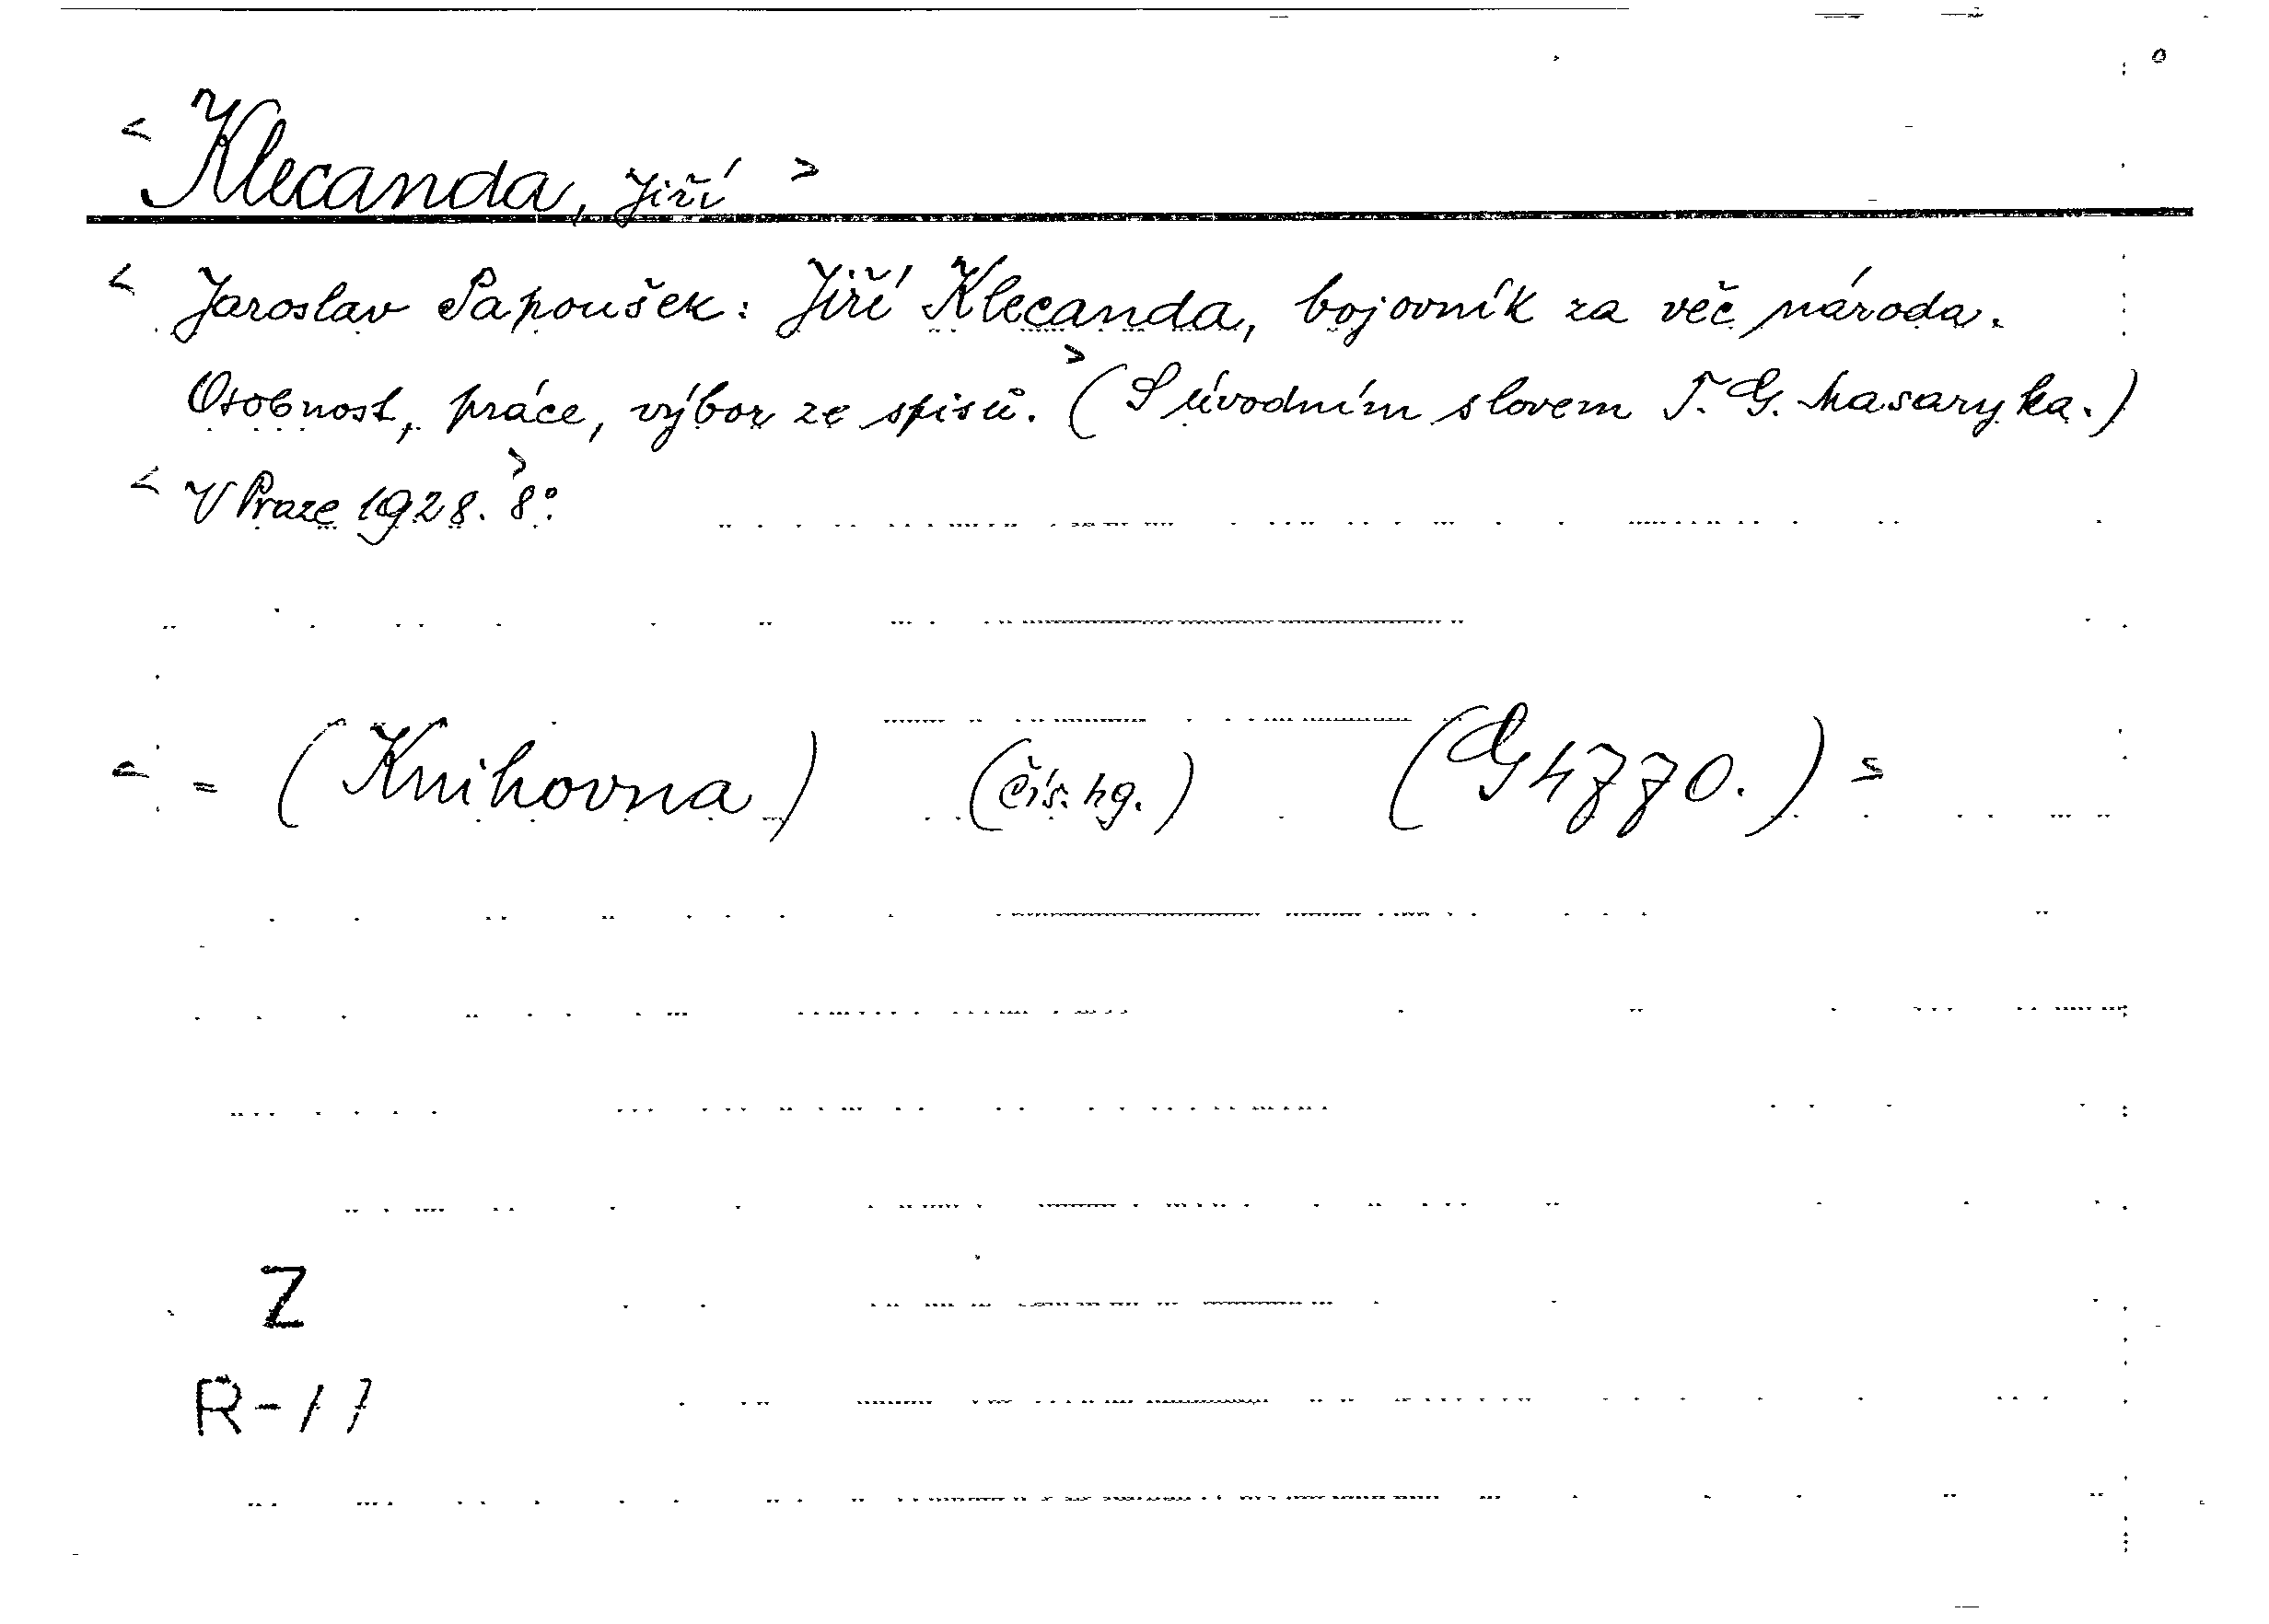 < Klecanda, Jiří >
< Jaroslav Papoušek: Jiří Klecanda, bojovník za věč národa.
Osobnost, práce, výbor ze spisů. > (S úvodním slovem T. G. Masaryka.)
< V Praze 1928. > 8°.
< = (Knihovna) (čís. hg.) (G 4770.) =
Z
R-17